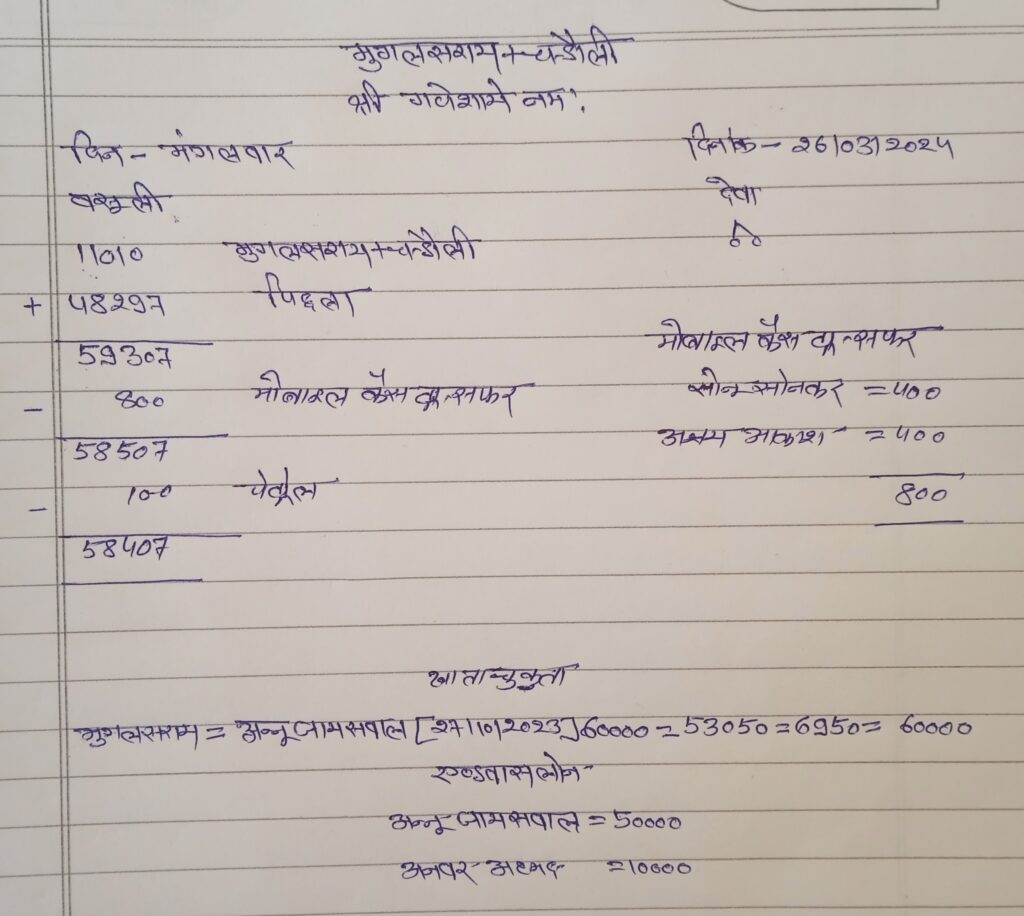 मुगलसराय + चन्दौली
श्री गणेशाये नमः
दिन - मंगलवार
दिनांक - 26/03/2024
वसूली
देवा
11010 मुगलसराय + चन्दौली
00
+ 48297 पिछला
59307
मोबाइल कैस ट्रान्सफर
- 800 मोबाइल कैस ट्रान्सफर
सोनू सोनकर = 400
58507
अक्षय आकाश = 400
- 100 पेट्रोल
800
58407
खाता चुकता
मुगलसराय = अन्नू जायसवाल [27/10/2023] 60000 = 53050 = 6950 = 60000
एडवांस लोन
अन्नू जायसवाल = 50000
अनवर अहमद = 10000